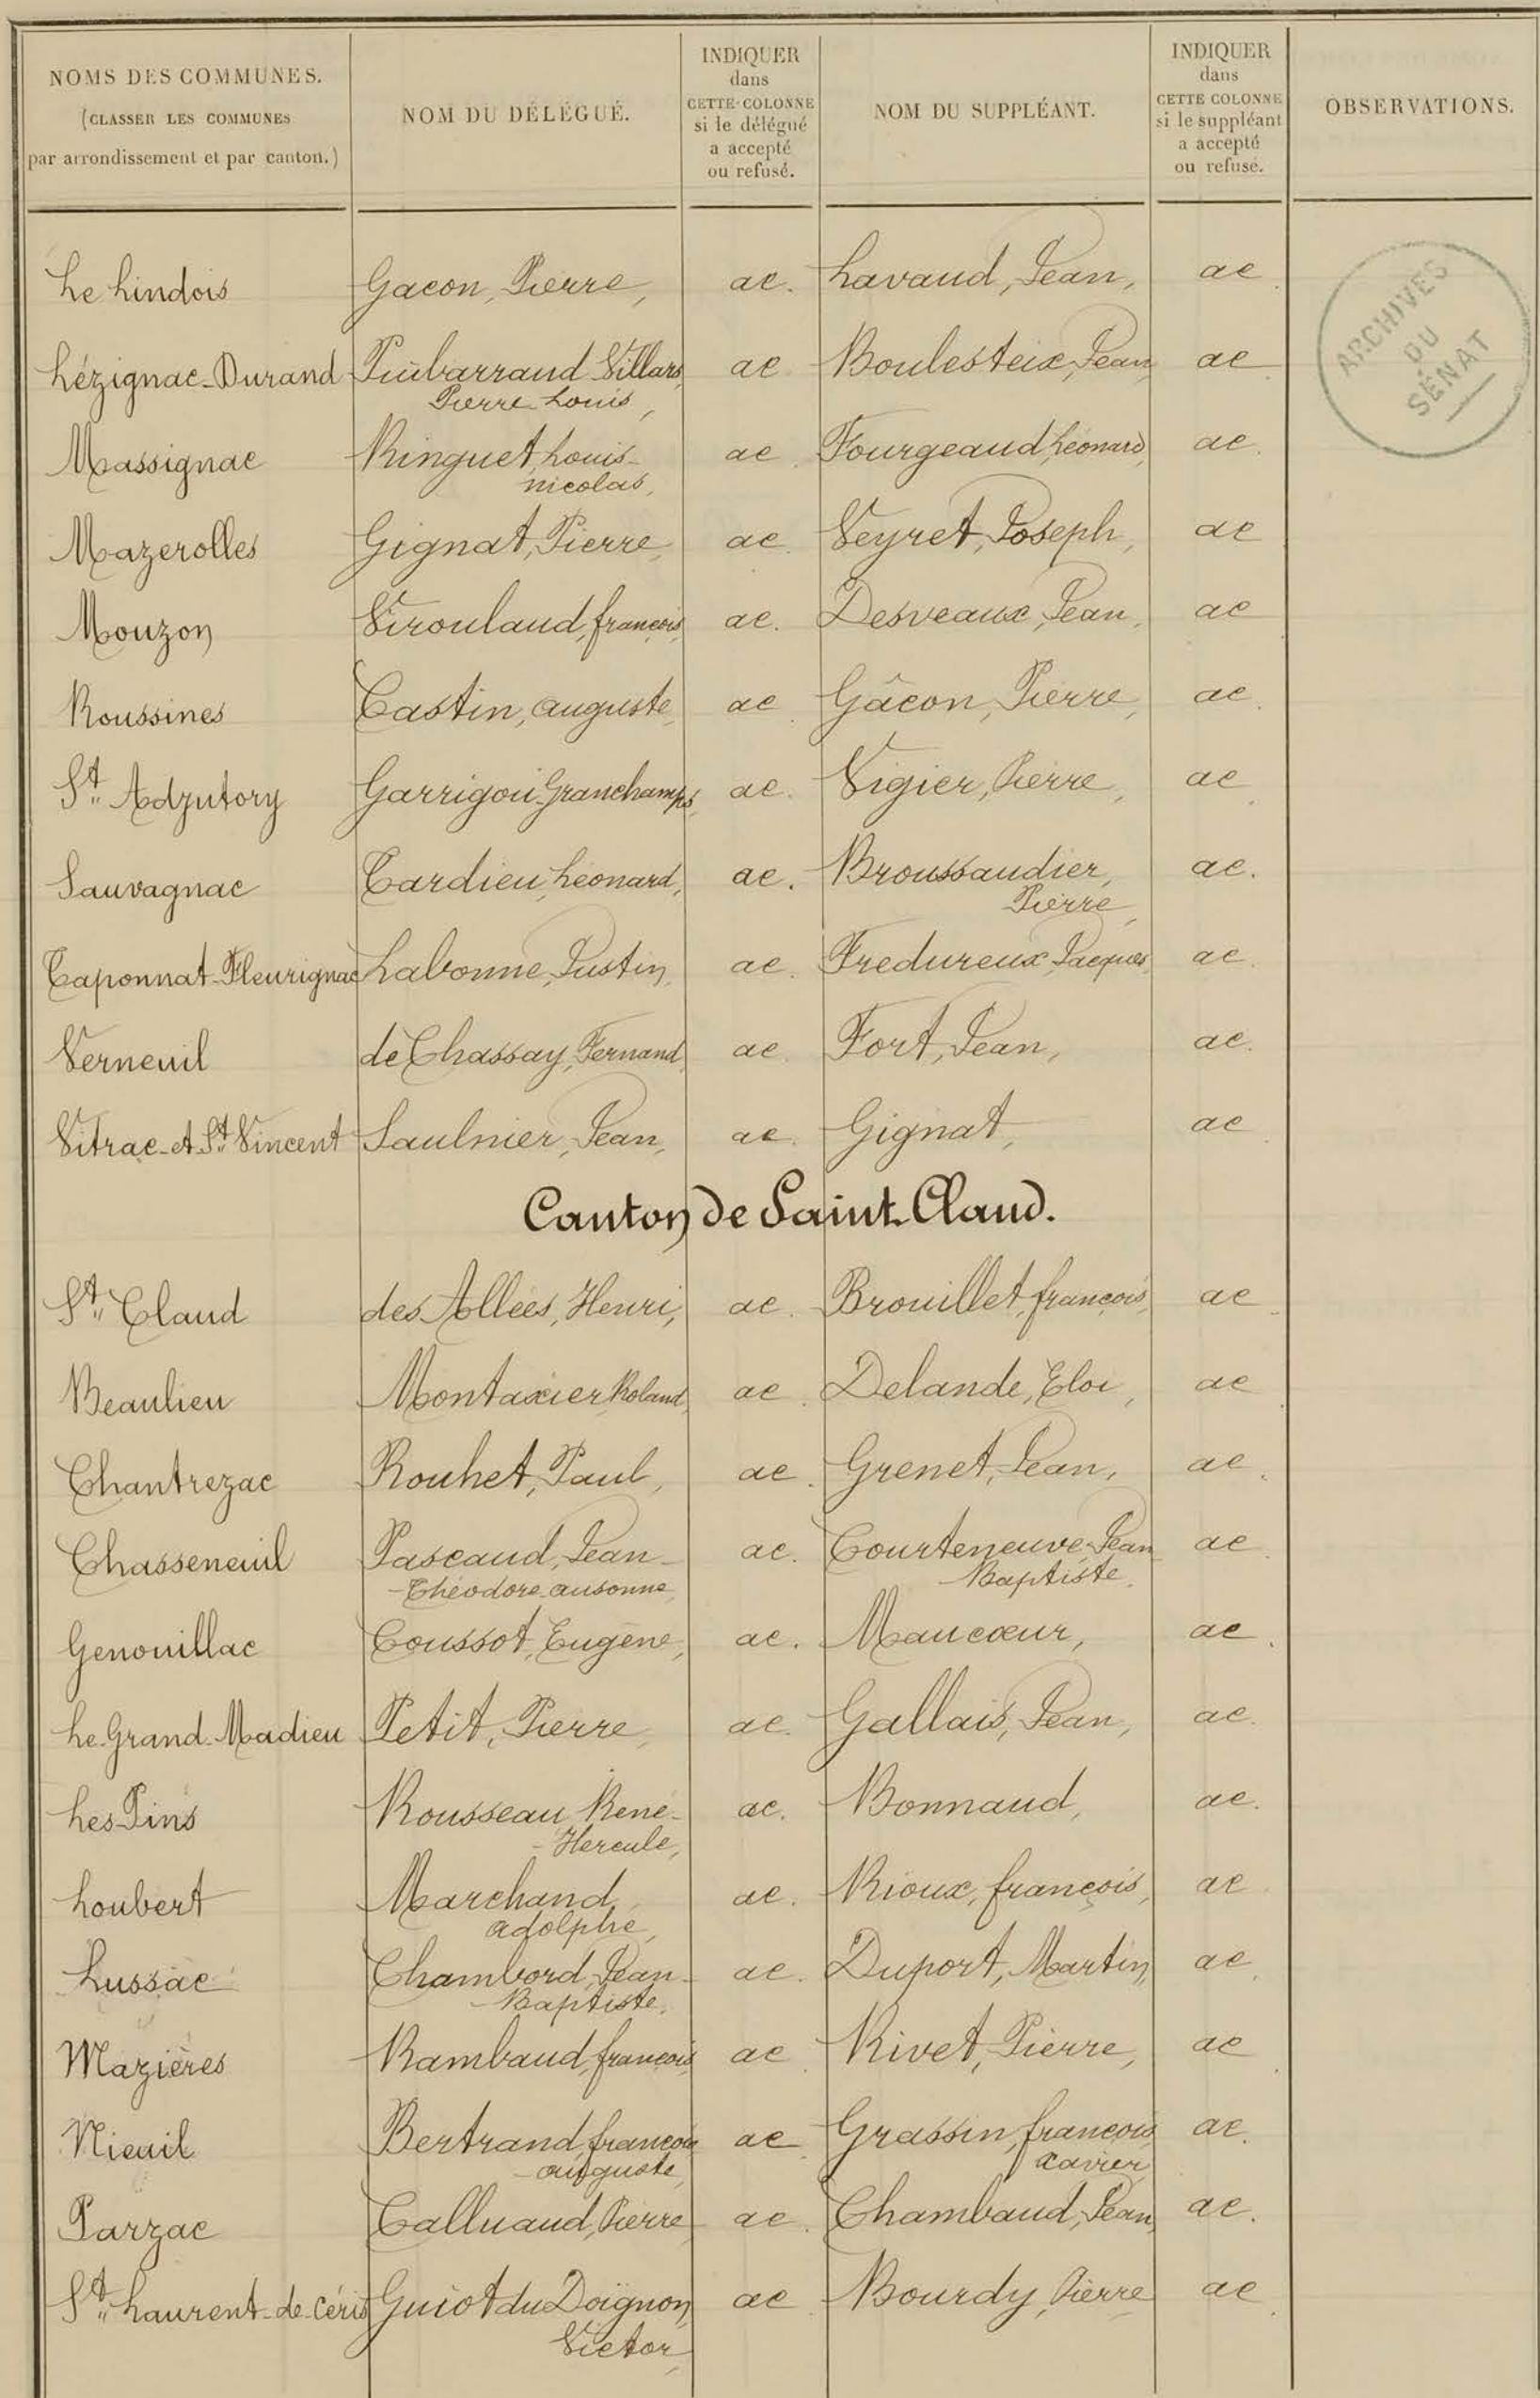 NOMS DES COMMUNES.
(CLASSER LES COMMUNES
par arrondissement et par canton.)
NOM DU DÉLÉGUÉ.
INDIQUER
dans
CETTE COLONNE
si le délégué
a accepté
ou refusé.
NOM DU SUPPLÉANT.
INDIQUER
dans
CETTE COLONNE
si le suppléant
a accepté
ou refusé.
OBSERVATIONS.
ARCHIVES
DU
SÉNAT
Le Lindois Gacon, Pierre, ac. Lavaud, Jean, ac
Lézignac-Durand Puibarraud Villars ac Boulesteix, Jean ac
Pierre Louis,
Massignac Ringuet, Louis- ac Fourgeaud, Léonard ac
nicolas,
Mazerolles Gignat, Pierre, ac Veyret, Joseph, ac
Mouzon Virouland, françois, ac. Desveaux, Jean, ac
Roussines Castin, auguste ac Gâcon, Pierre, ac
St Adjutory Garrigou-Granchamps, ac. Vigier, Pierre, ac
Sauvagnac Tardieu, Léonard, ac. Broussaudier, ac.
Pierre,
Taponnat-Fleurignac Labonne, Justin, ac. Fredureux, Jacques ac
Verneuil de Chassay, Fernand, ac Fort, Jean, ac.
Vitrac-et-St Vincent Saulnier, Jean, ac. Gignat, ac
Canton de Saint-Claud.
St Claud des Allées, Henri, ac. Brouillet, françois, ac
Beaulieu Montaxier Roland, ac Delande, Eloi, ac
Chantrezac Rouhet, Paul, ac Grenet, Jean, ac
Chasseneuil Pascaud, Jean- ac. Courteneuve, Jean ac
-Théodore-ausonne, Baptiste,
Genouillac Coussot, Eugène, ac. Maucœur, ac
Le-Grand-Madieu Petit, Pierre, ac. Gallais, Jean, ac
Les Pins Rousseau, René- ac. Bonnaud, ac.
-Hercule,
Loubert Marchand, ac. Rioux, françois, ac
adolphe,
Lussac Chambord, Jean- ac. Duport, Martin, ac
Baptiste,
Mazières Rambaud, françois, ac Rivet, Pierre, ac
Nieuil Bertrand, françois ac Grassin, françois ac.
-auguste, xavier
Parzac Calluaud, Pierre ac. Chambaud, Jean, ac.
St Laurent-de-Céris Guiot du Doignon, ac Bourdy, Pierre ac
Victor,